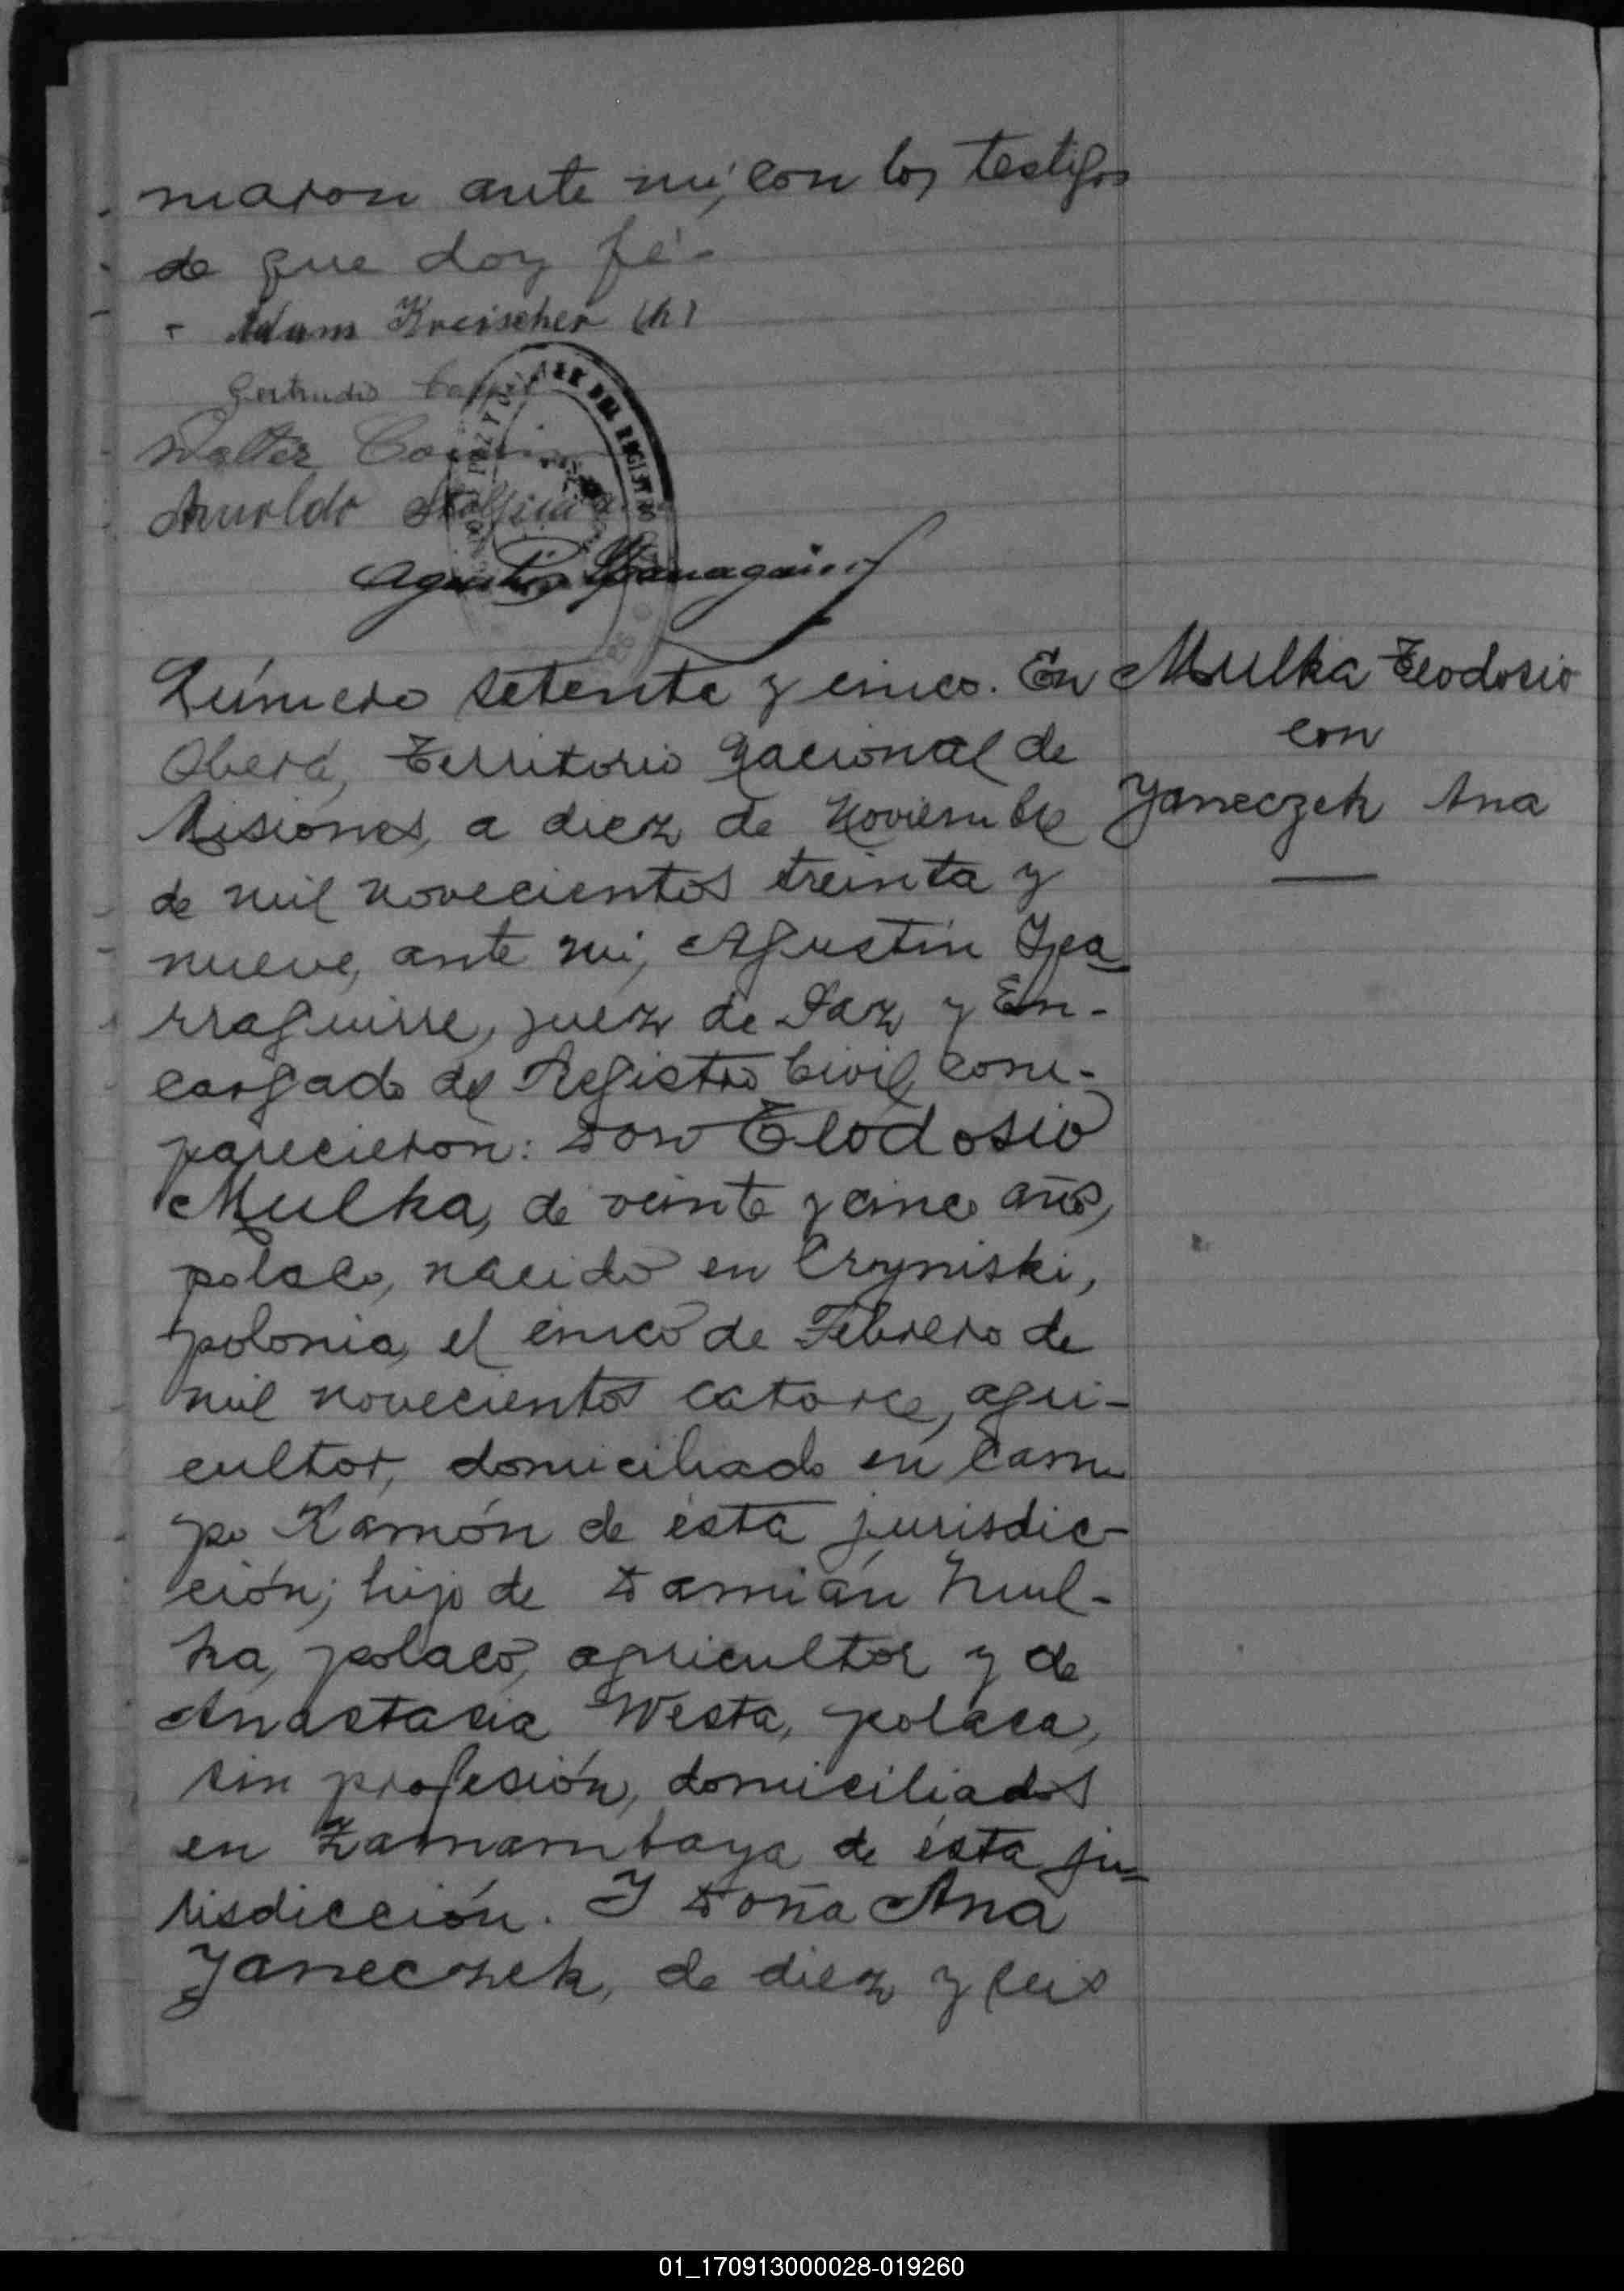 maron ante mí, con los testigos
de que doy fé.-
Adam Kreischer (h)
Gertrudis
Walter
Arnoldo
Agustin
Número setenta y cinco. En
Mulka Teodosio
con
Yaneczek Ana
Oberá, Territorio Nacional de
Misiones, a diez de Noviembre
de mil novecientos treinta y
nueve, ante mi, Agustín Ipa
rraguirre, juez de Paz y En-
cargado del Registro Civil, com-
parecieron: Don Teodosio
Mulka, de veinte y cinco años,
polaco, nacido en Cryniski,
polonia, el cinco de Febrero de
mil novecientos catorce, agri-
cultor, domiciliado en Cam
po Ramón de ésta jurisdic-
ción; hijo de Damián Mul-
ka, polaco, agricultor y de
Anastacia Westa, polaca,
sin profesión, domiciliados
en Zamambaya de ésta ju-
risdicción. Y Doña Ana
Yaneczek, de diez y seis
01_170913000028-019260